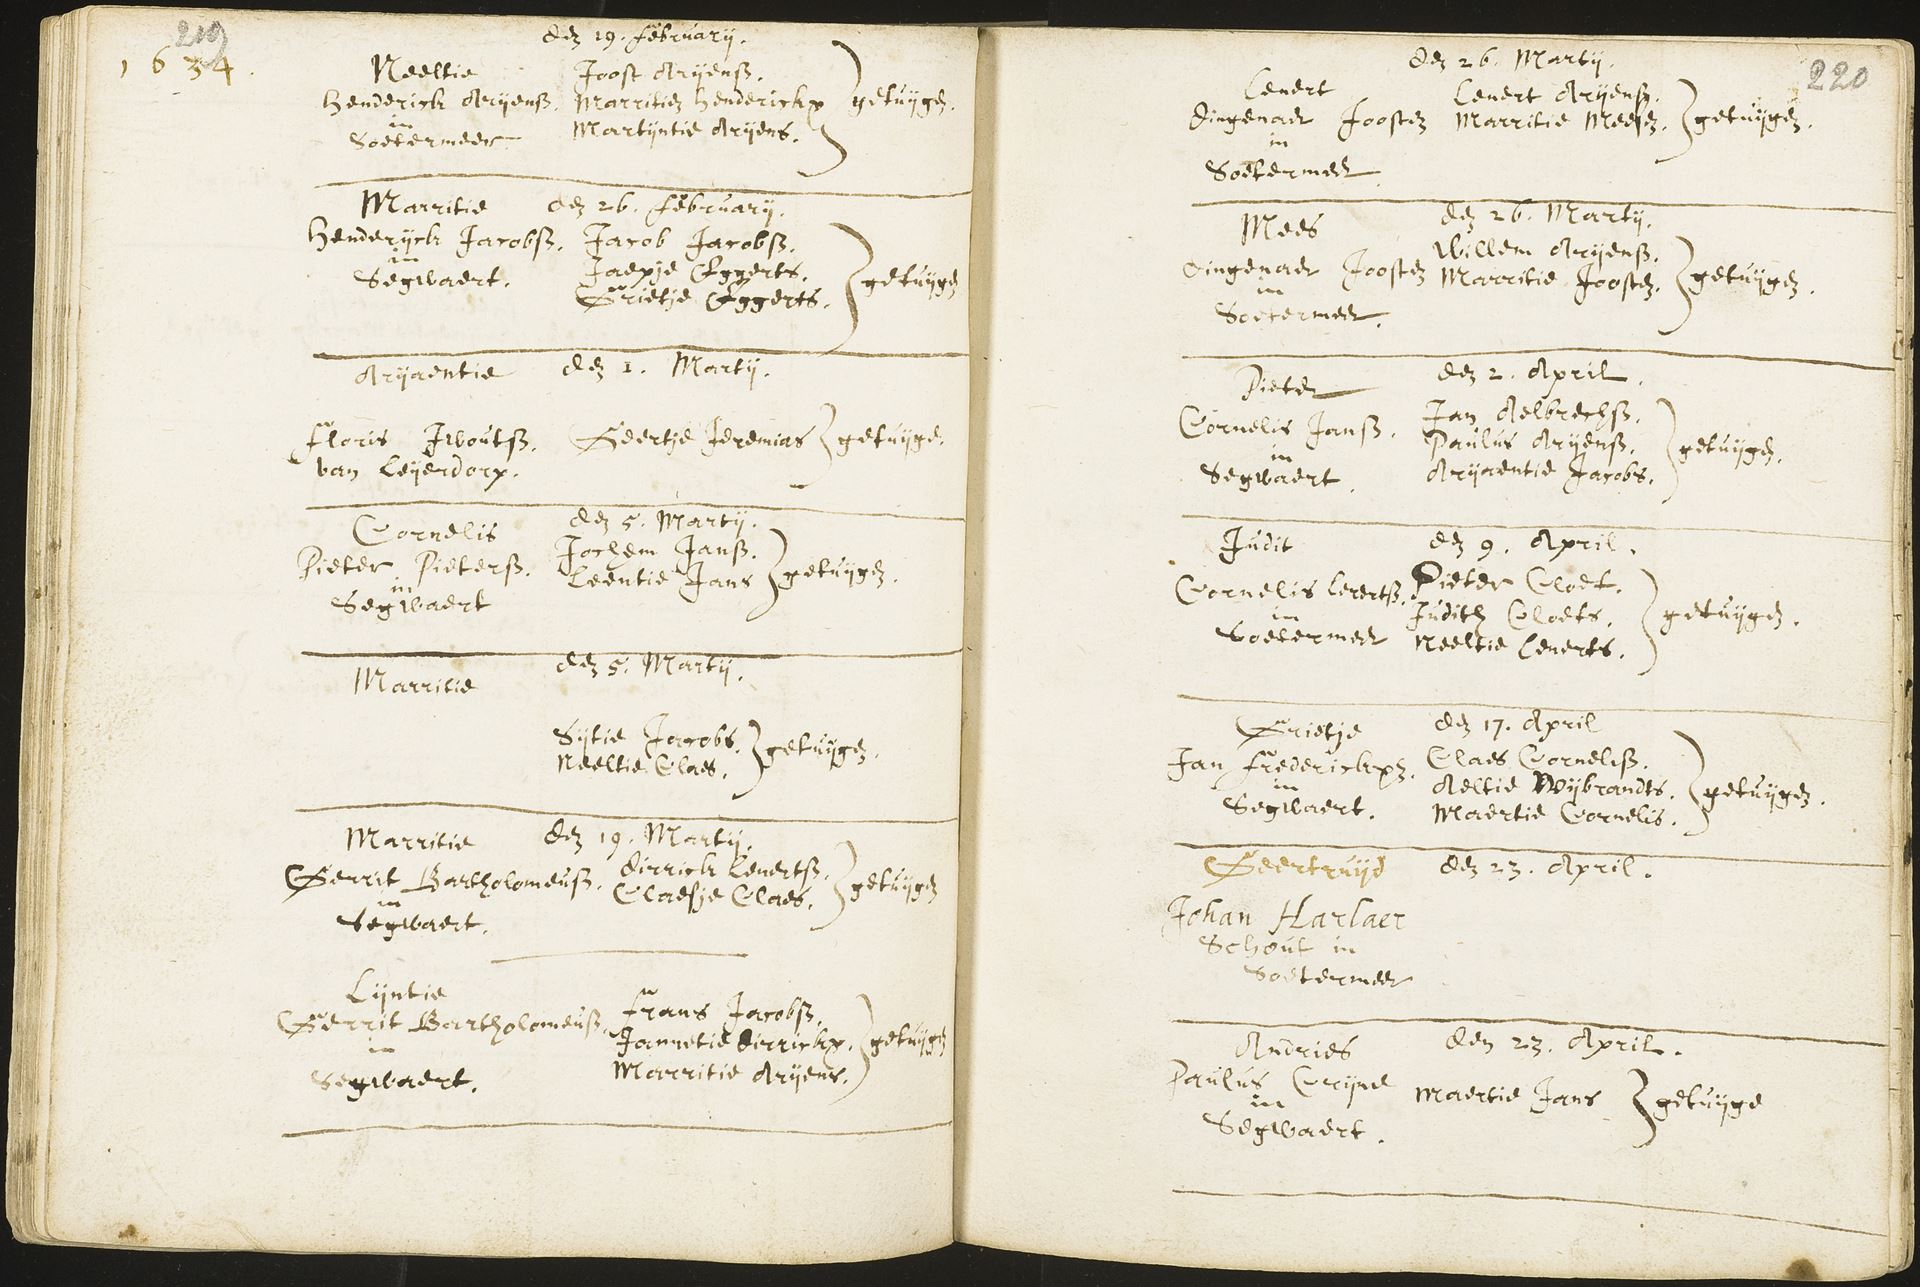 219
1634.
den 19. february.
Neeltie
Henderick Arijensz. Joost Arijensz.
in Marritien Hendericks getuijgen.
Soetermeer Martijntie Arijens.
Marritie den 26. february.
Henderijck Jacobsz. Jacob Jacobsz.
in Jaepje Eggerts. getuijgen
Segwaert. Grietje Eggerts.
Arijaentie den 1. Martij.
Floris Iwoutsz. Geertje Jeremias getuijge.
van Leijerdorp.
Cornelis den 5. Martij.
Pieter Pietersz. Jochem Jansz.
in Leentie Jans getuijgen.
Segwaert
Marritie den 5. Martij.
Sijtie Jacobs. getuijgen.
Neeltie Claes.
Marritie den 19. Martij.
Gerrit Bartholomeusz. dirrick Lenertsz. getuijgen
in Claesje Claes.
Segwaert.
Lijntie
Gerrit Bartholomeusz. Frans Jacobsz.
in Jannetie dirricks. getuijgen
Segwaert. Marritie Arijens.
220
den 26. Martij.
Lenert Lenert Arijensz.
dingenaer Joosten Marritie Meesen. getuijgen.
in
Soetermeer
Mees den 26. Martij.
dingenaer Joosten Willem Arijensz.
in Marritie Joosten. getuijgen.
Soetermeer.
Pieter den 2. April.
Cornelis Jansz. Jan Aelbrechsz.
in Paulus Arijensz. getuijgen.
Segwaert. Arijaentie Jacobs.
Judit den 9. April.
Cornelis Lenertsz. Pieter Cloet.
in Judith Cloets. getuijgen.
Soetermeer Neeltie Lenerts.
Grietje den 17. April
Jan Fredericksz. Claes Cornelisz.
in Aeltie Wijbrandts. getuijgen.
Segwaert. Maertie Cornelis.
Geertruijd den 23. April.
Johan Harlaer
Schout in
Soetermeer
Andries den 23. April.
Paulus Crijne Maertie Jans getuijge
in
Segwaert.